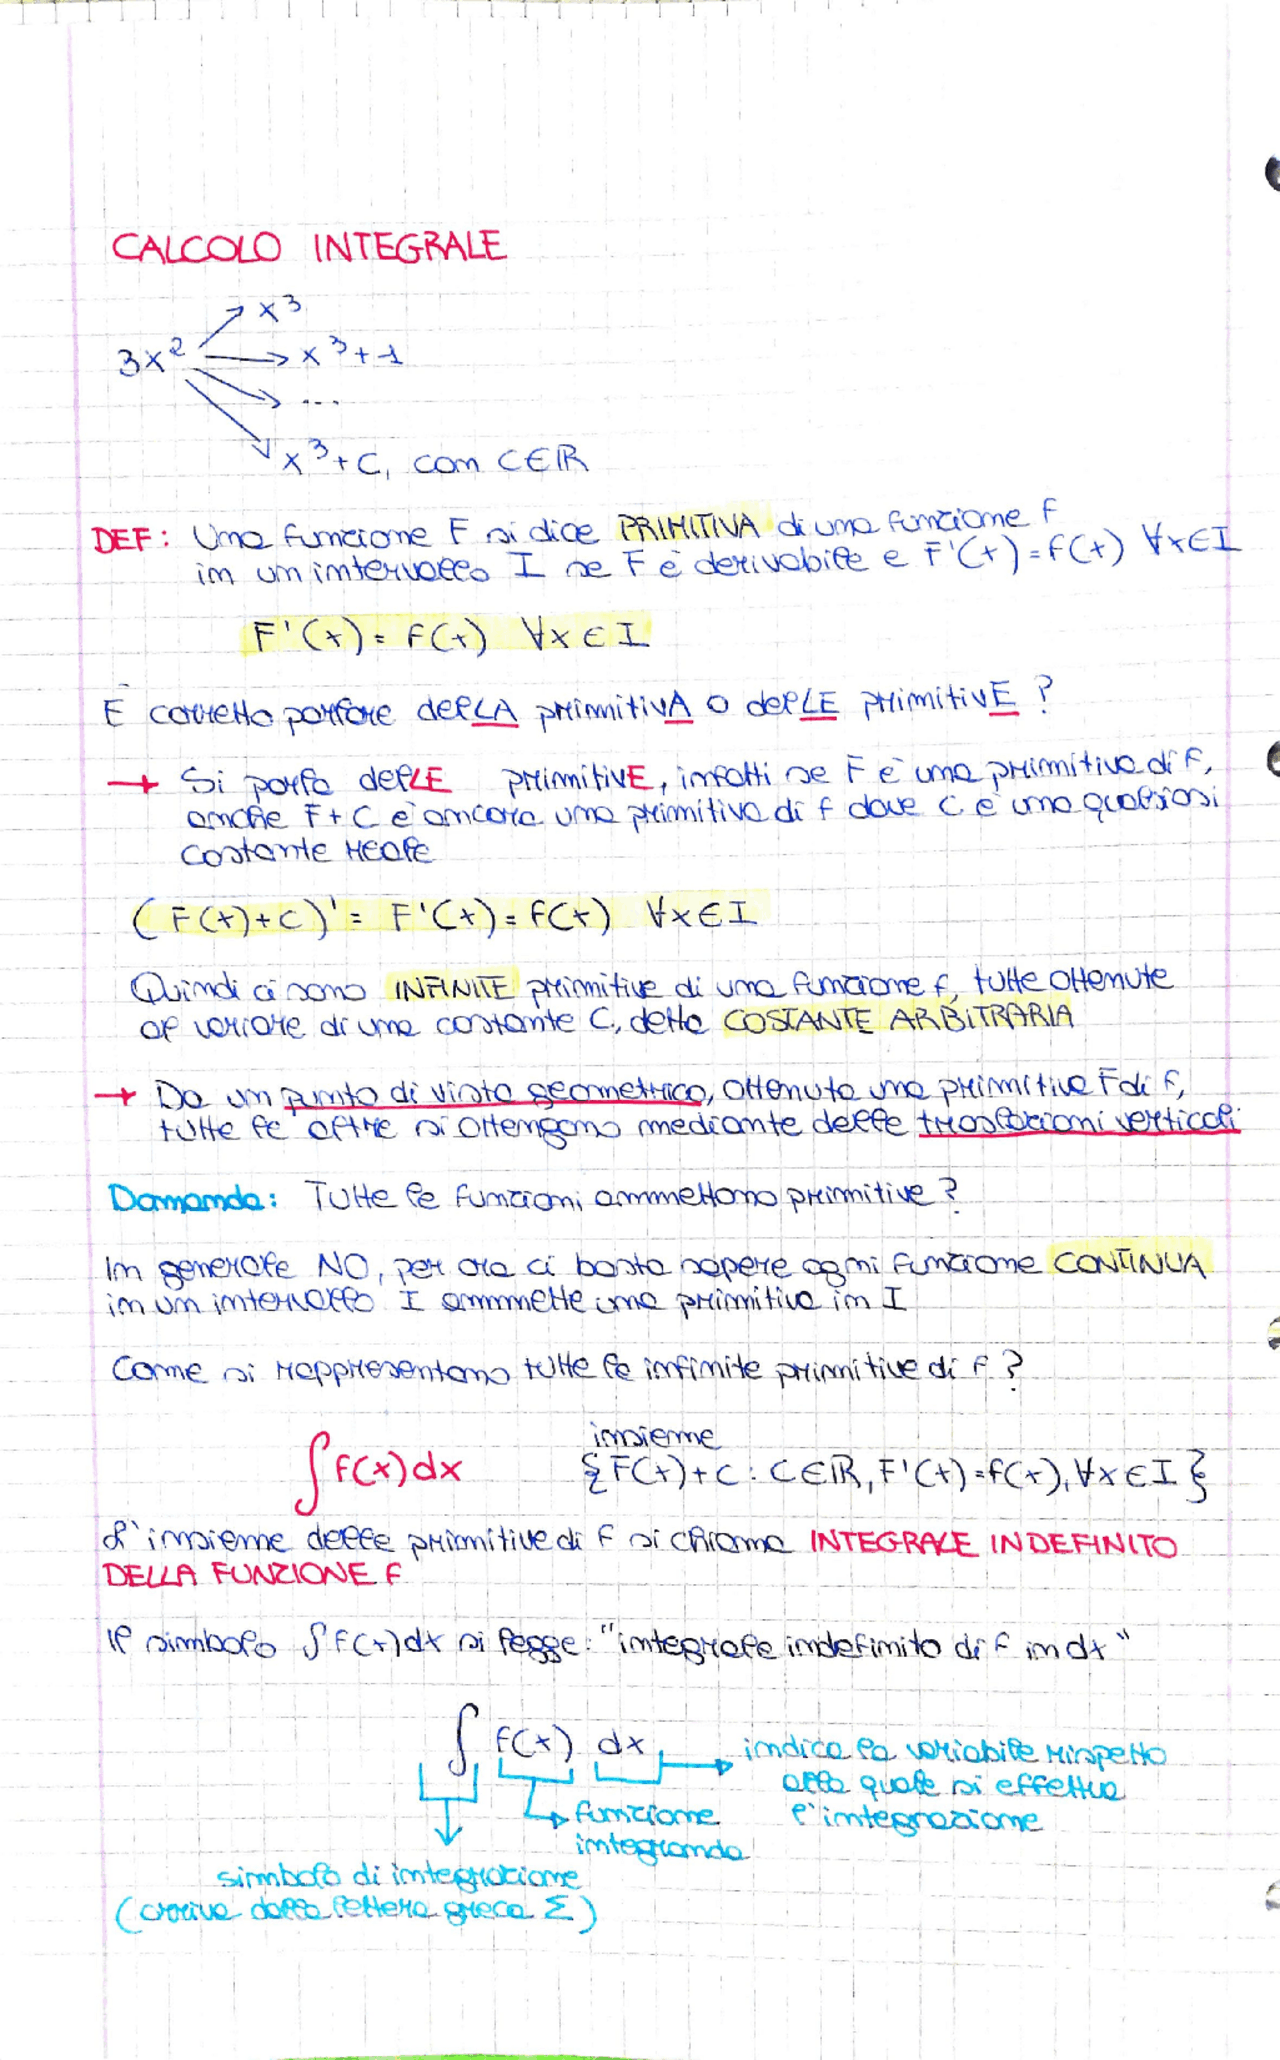 CALCOLO INTEGRALE
3x² → x³
→ x³+1
→ ...
→ x³+C, con C∈ℝ
DEF: Una funzione F si dice PRIMITIVA di una funzione f
in un intervallo I se F è derivabile e F'(x)=f(x) ∀x∈I
F'(x) = f(x) ∀x∈I
È corretto parlare delLA primitivA o delLE primitivE?
→ Si parla delLE primitivE, infatti se F è una primitiva di f,
anche F+C è ancora una primitiva di f dove C è una qualsiasi
costante reale
(F(x)+C)' = F'(x) = f(x) ∀x∈I
Quindi ci sono INFINITE primitive di una funzione f, tutte ottenute
al variare di una costante C, detta COSTANTE ARBITRARIA
→ Da un punto di vista geometrico, ottenuta una primitiva F di f,
tutte le altre si ottengono mediante delle traslazioni verticali
Domanda: Tutte le funzioni ammettono primitive?
In generale NO, per ora ci basta sapere ogni funzione CONTINUA
in un intervallo I ammette una primitiva in I
Come si rappresentano tutte le infinite primitive di f?
insieme
∫f(x)dx {F(x)+C : C∈ℝ, F'(x)=f(x), ∀x∈I}
L'insieme delle primitive di f si chiama INTEGRALE INDEFINITO
DELLA FUNZIONE f
Il simbolo ∫f(x)dx si legge: "integrale indefinito di f in dx"
∫ f(x) dx → indica la variabile rispetto
alla quale si effettua
l'integrazione
funzione
integranda
simbolo di integrazione
(arriva dalla lettera greca Σ)